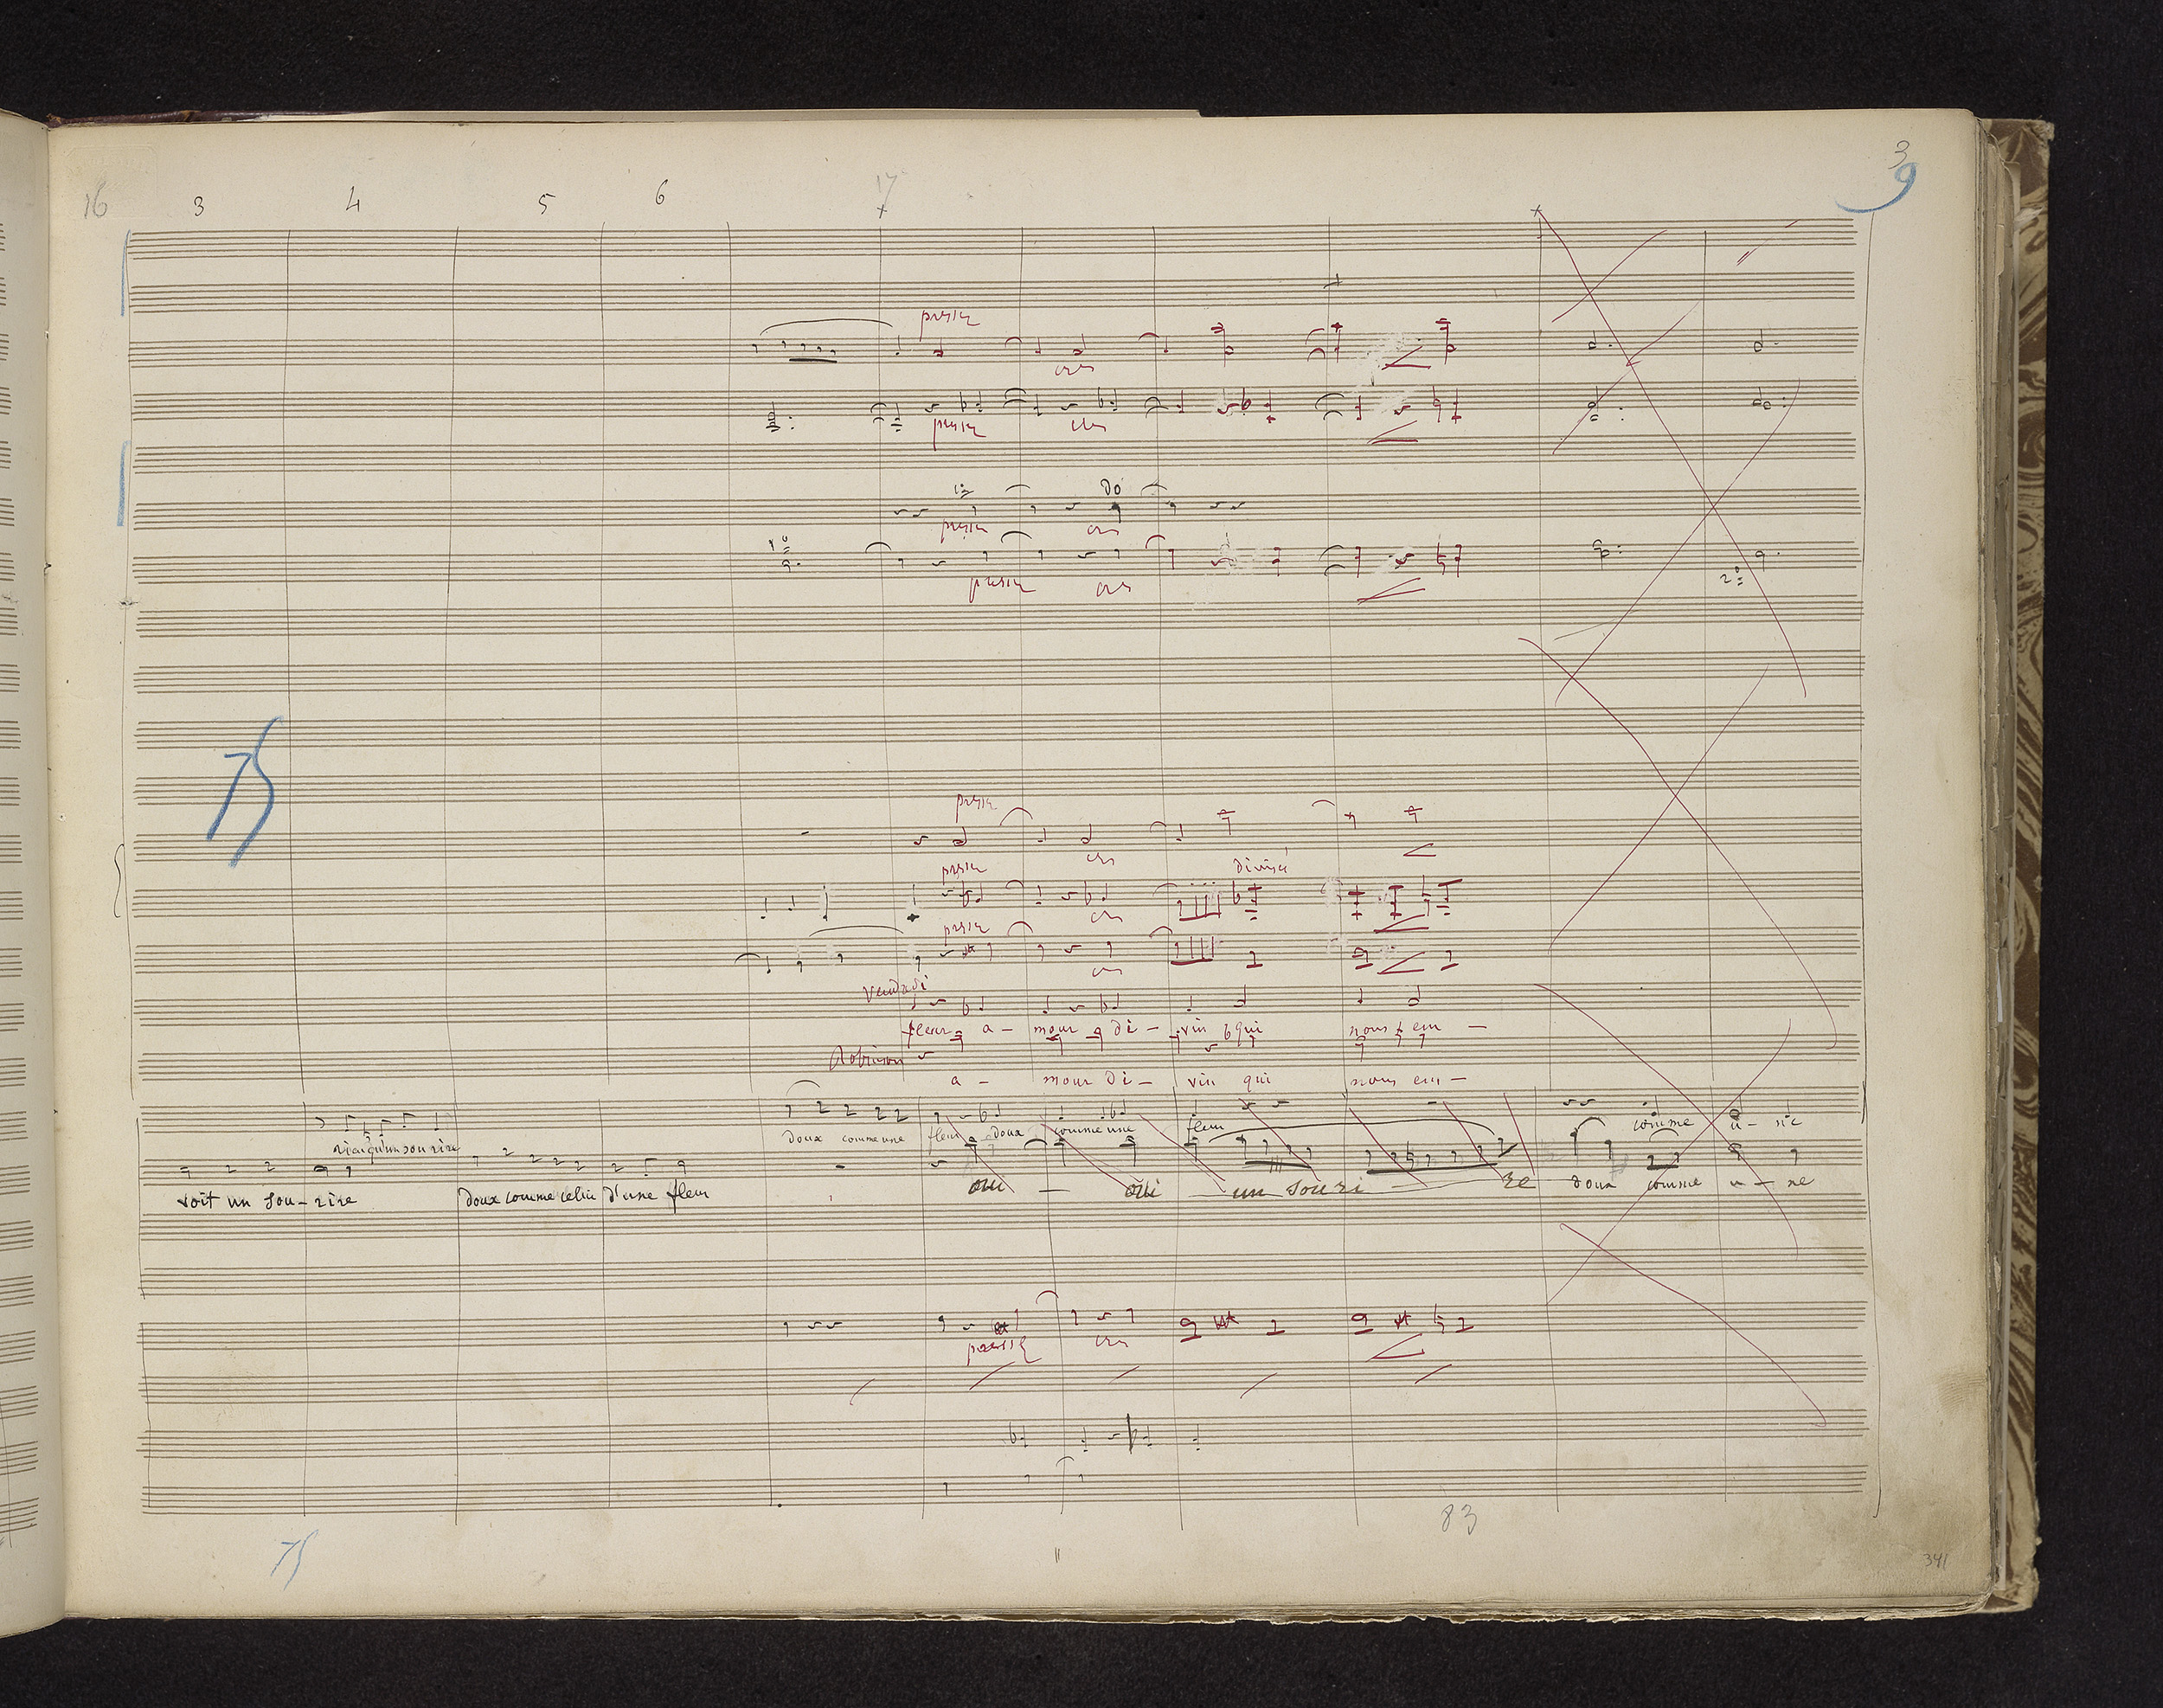 3
16 3 4 5 6 17 9
pressez
cres
pressez cres
1º do
pressez cres
pressez cres
2º
75
pressez
cres
pressez divisé
cres
pressez
cres
Vendredi
fleur a - mour di - vin qui nous em -
Robinson
a - mour di - vin qui nous em -
rien qu'un sourire doux comme une fleur doux comme une fleur comme u - ne
voit un sou - rire doux comme celui d'une fleur oui - oui un souri - re doux comme u - ne
pressez cres
83
75
341